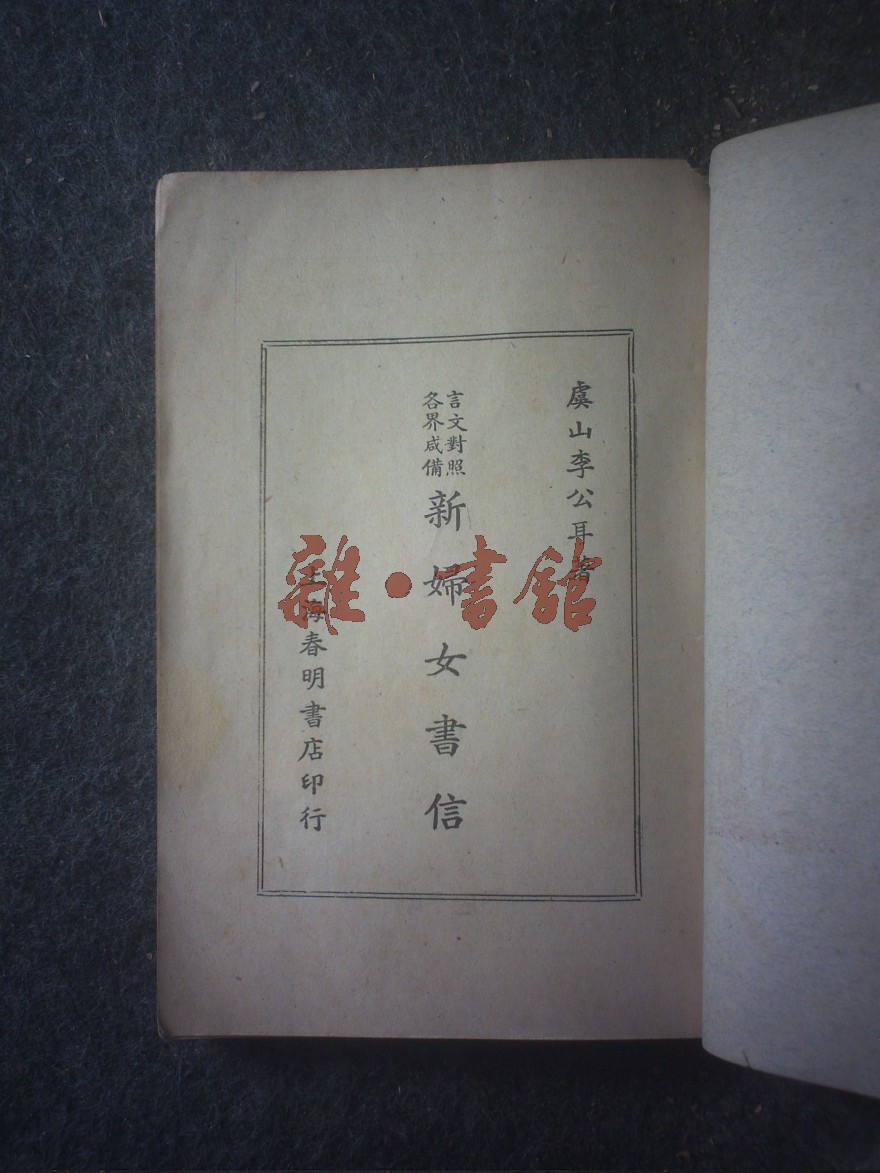 虞山李公耳著
言文對照
各界咸備
新婦女書信
上海春明書店印行
雜·書館